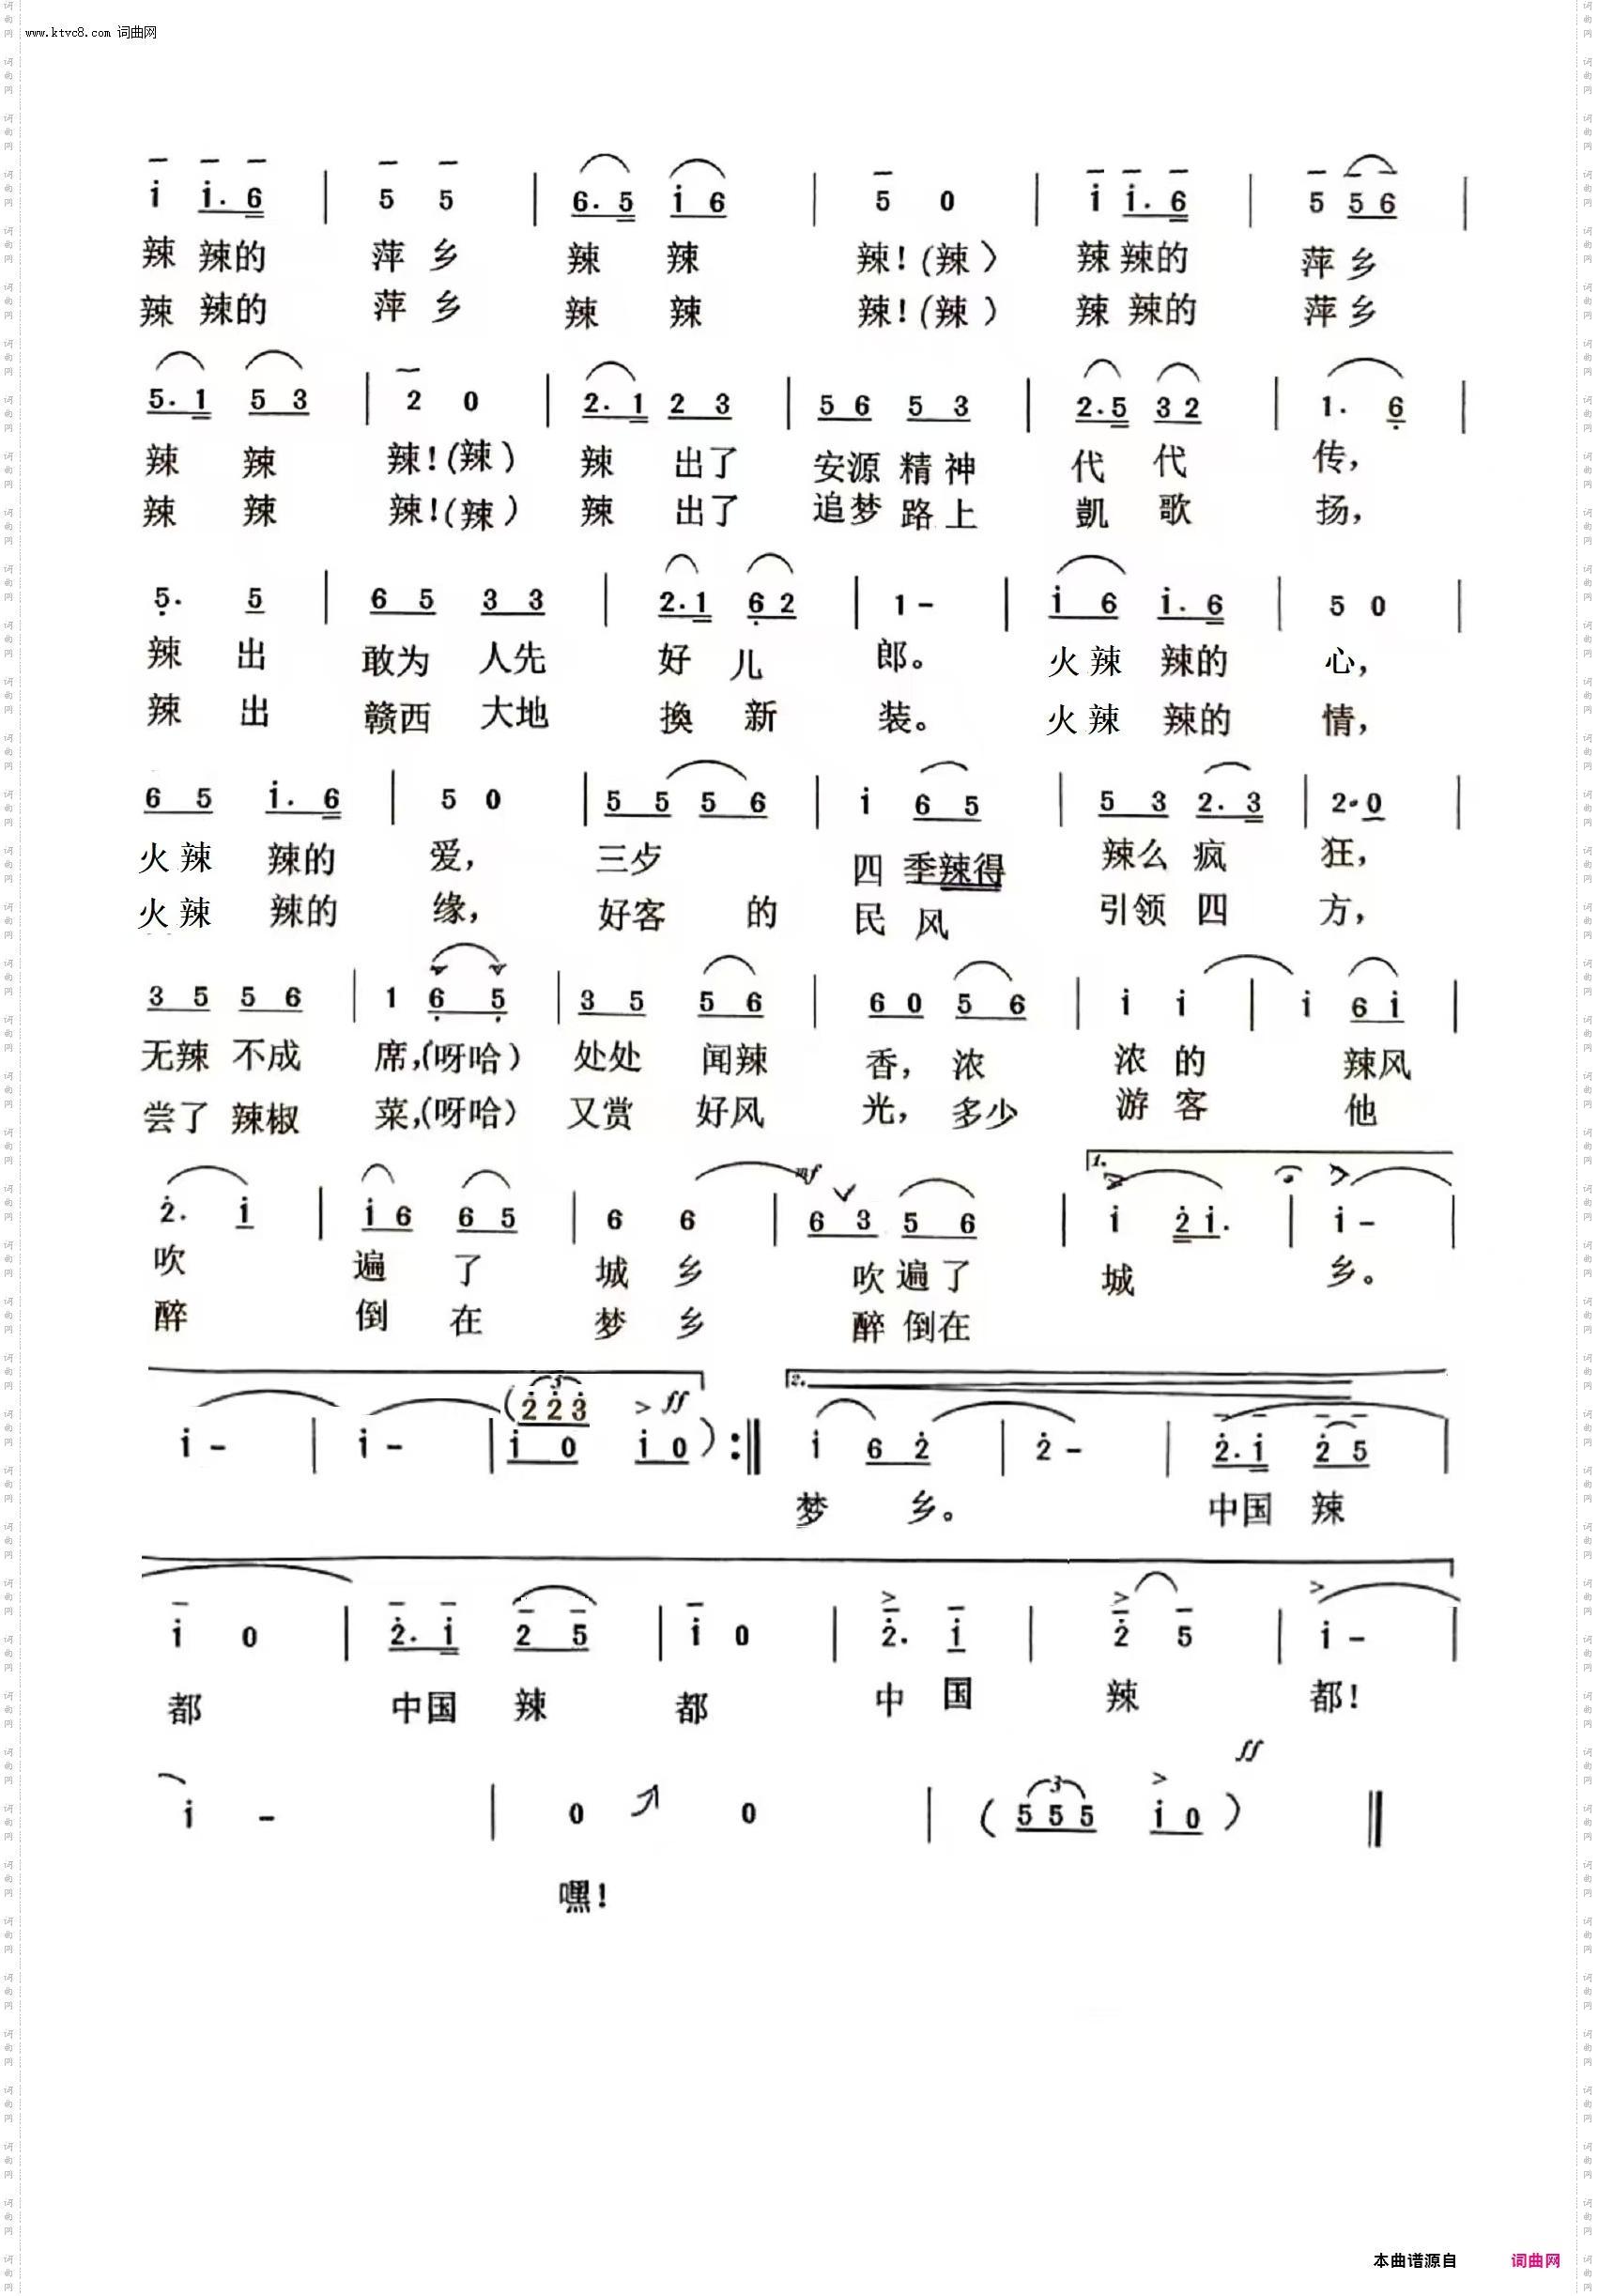 www.ktvc8.com 词曲网
i i. 6 | 5 5 | 6. 5 i 6 | 5 0 | i i. 6 | 5 5 6 |
辣 辣的 萍 乡 辣 辣 辣!(辣) 辣 辣的 萍 乡
辣 辣的 萍 乡 辣 辣 辣!(辣) 辣 辣的 萍 乡
5. 1 5 3 | 2 0 | 2. 1 2 3 | 5 6 5 3 | 2. 5 3 2 | 1. 6 |
辣 辣 辣!(辣) 辣 出了 安源 精 神 代 代 传,
辣 辣 辣!(辣) 辣 出了 追梦 路 上 凱 歌 扬,
5. 5 | 6 5 3 3 | 2. 1 6 2 | 1 – | i 6 i. 6 | 5 0 |
辣 出 敢为 人先 好 儿 郎。 火 辣 辣的 心,
辣 出 赣西 大地 换 新 装。 火 辣 辣的 情,
6 5 i. 6 | 5 0 | 5 5 5 6 | i 6 5 | 5 3 2. 3 | 2. 0 |
火 辣 辣的 爱, 三歺 四 季辣得 辣么 疯 狂,
火 辣 辣的 缘, 好客 的 民 风 引领 四 方,
3 5 5 6 | 1 6 5 | 3 5 5 6 | 6 0 5 6 | i i | i 6 i |
无辣 不成 席,(呀哈) 处处 闻辣 香, 浓 浓 的 辣风
尝了 辣椒 菜,(呀哈) 又赏 好风 光, 多少 游 客 他
mf 1.
2. i | i 6 6 5 | 6 6 | 6 3 5 6 | i 2 i. | i – |
吹 遍 了 城 乡 吹 遍 了 城 乡。
醉 倒 在 梦 乡 醉 倒在
(3 2 2 3 > ff 2.
i – | i – | i 0 i 0 ) :‖ i 6 2 | 2 – | 2. i 2 5 |
梦 乡。 中国 辣
i 0 | 2. i 2 5 | i 0 | 2. i | 2 5 | i – |
都 中国 辣 都 中 国 辣 都!
ff
i – | 0 0 | ( 3 5 5 5 i 0 ) ‖
嘿!
本曲谱源自 词曲网